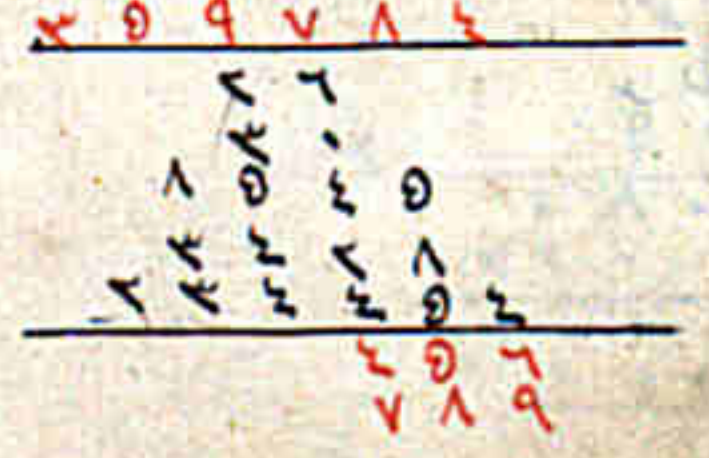 ٣ ٥ ٩ ٧ ٨ ٤
٢ ٦
٣ ٠
٨ ٥ ٤ ٥
٣ ٤ ٢ ٨
٢ ٣ ٤ ٤ ٥ ٤
٤ ٥ ٦
٧ ٨ ٩